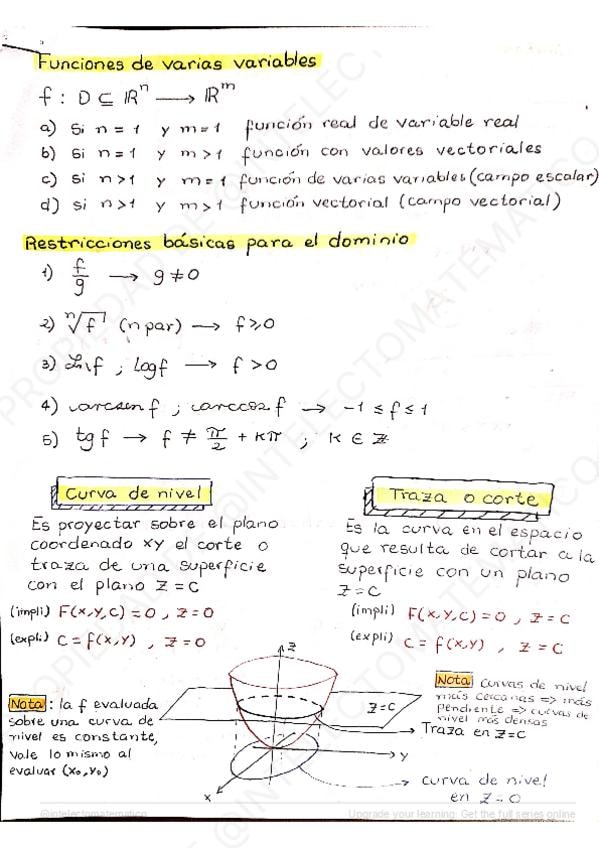 Funciones de varias variables
f : D ⊆ ℝⁿ ⟶ ℝᵐ
a) Si n = 1 y m = 1 función real de variable real
b) Si n = 1 y m > 1 función con valores vectoriales
c) Si n > 1 y m = 1 función de varias variables (campo escalar)
d) si n > 1 y m > 1 función vectorial (campo vectorial)
Restricciones básicas para el dominio
1) f/g ⟶ g ≠ 0
2) ⁿ√f (n par) ⟶ f ≥ 0
3) Ln f ; log f ⟶ f > 0
4) arcsen f ; arccos f → -1 ≤ f ≤ 1
5) tg f → f ≠ π/2 + kπ ; k ∈ ℤ
Curva de nivel
Es proyectar sobre el plano
coordenado XY el corte o
traza de una superficie
con el plano Z = C
(impli) F(x,y,c) = 0 , z = 0
(expli) C = f(x,y) , Z = 0
Traza o corte
Es la curva en el espacio
que resulta de cortar a la
superficie con un plano
Z = C
(impli) F(x,y,c) = 0 , z = c
(expli) C = f(x,y) , Z = C
Nota : la f evaluada
sobre una curva de
nivel es constante,
vale lo mismo al
evaluar (x₀,y₀)
Z
Z=C
Y
X
Nota curvas de nivel
más cercanas => más
pendiente => curvas de
nivel más densas
Traza en Z=C
curva de nivel
en Z = 0
@intelectomatematico
Upgrade your learning: Get the full series online
PROPIEDAD DE @INTELECTOMATEMATICO